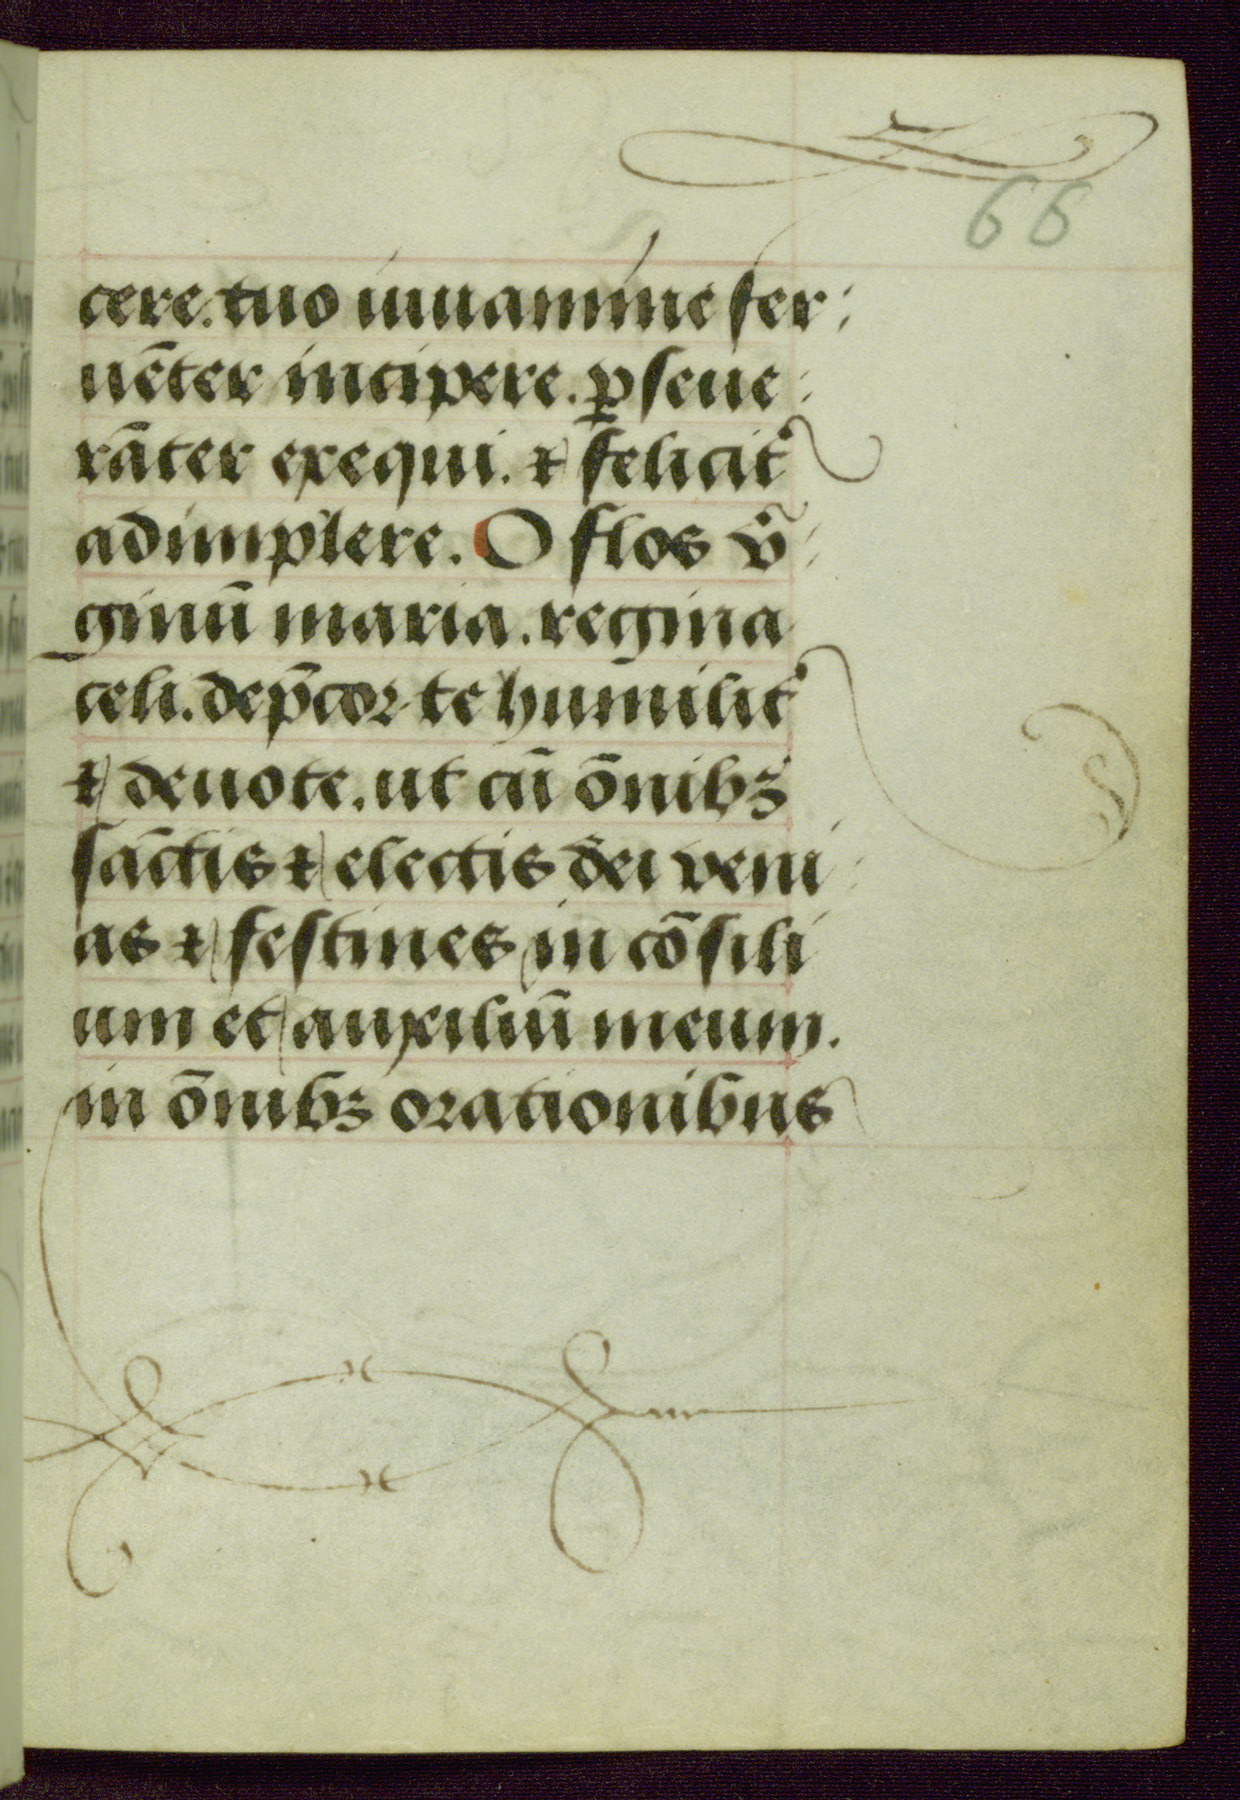 66
cere. tuo iuuamine fer:
uēter incipere. ꝑseue:
rāter exequi. ⁊ felicit᷑
adimplere. O flos v̄:
ginū maria. regina
celi. dep̄cor te humilit᷑
⁊ deuote. ut cū om̄ibꝫ
sāctis ⁊ electis dei veni:
as ⁊ festines in cōsili
um et auxiliū meum.
in ōnibꝫ orationibus